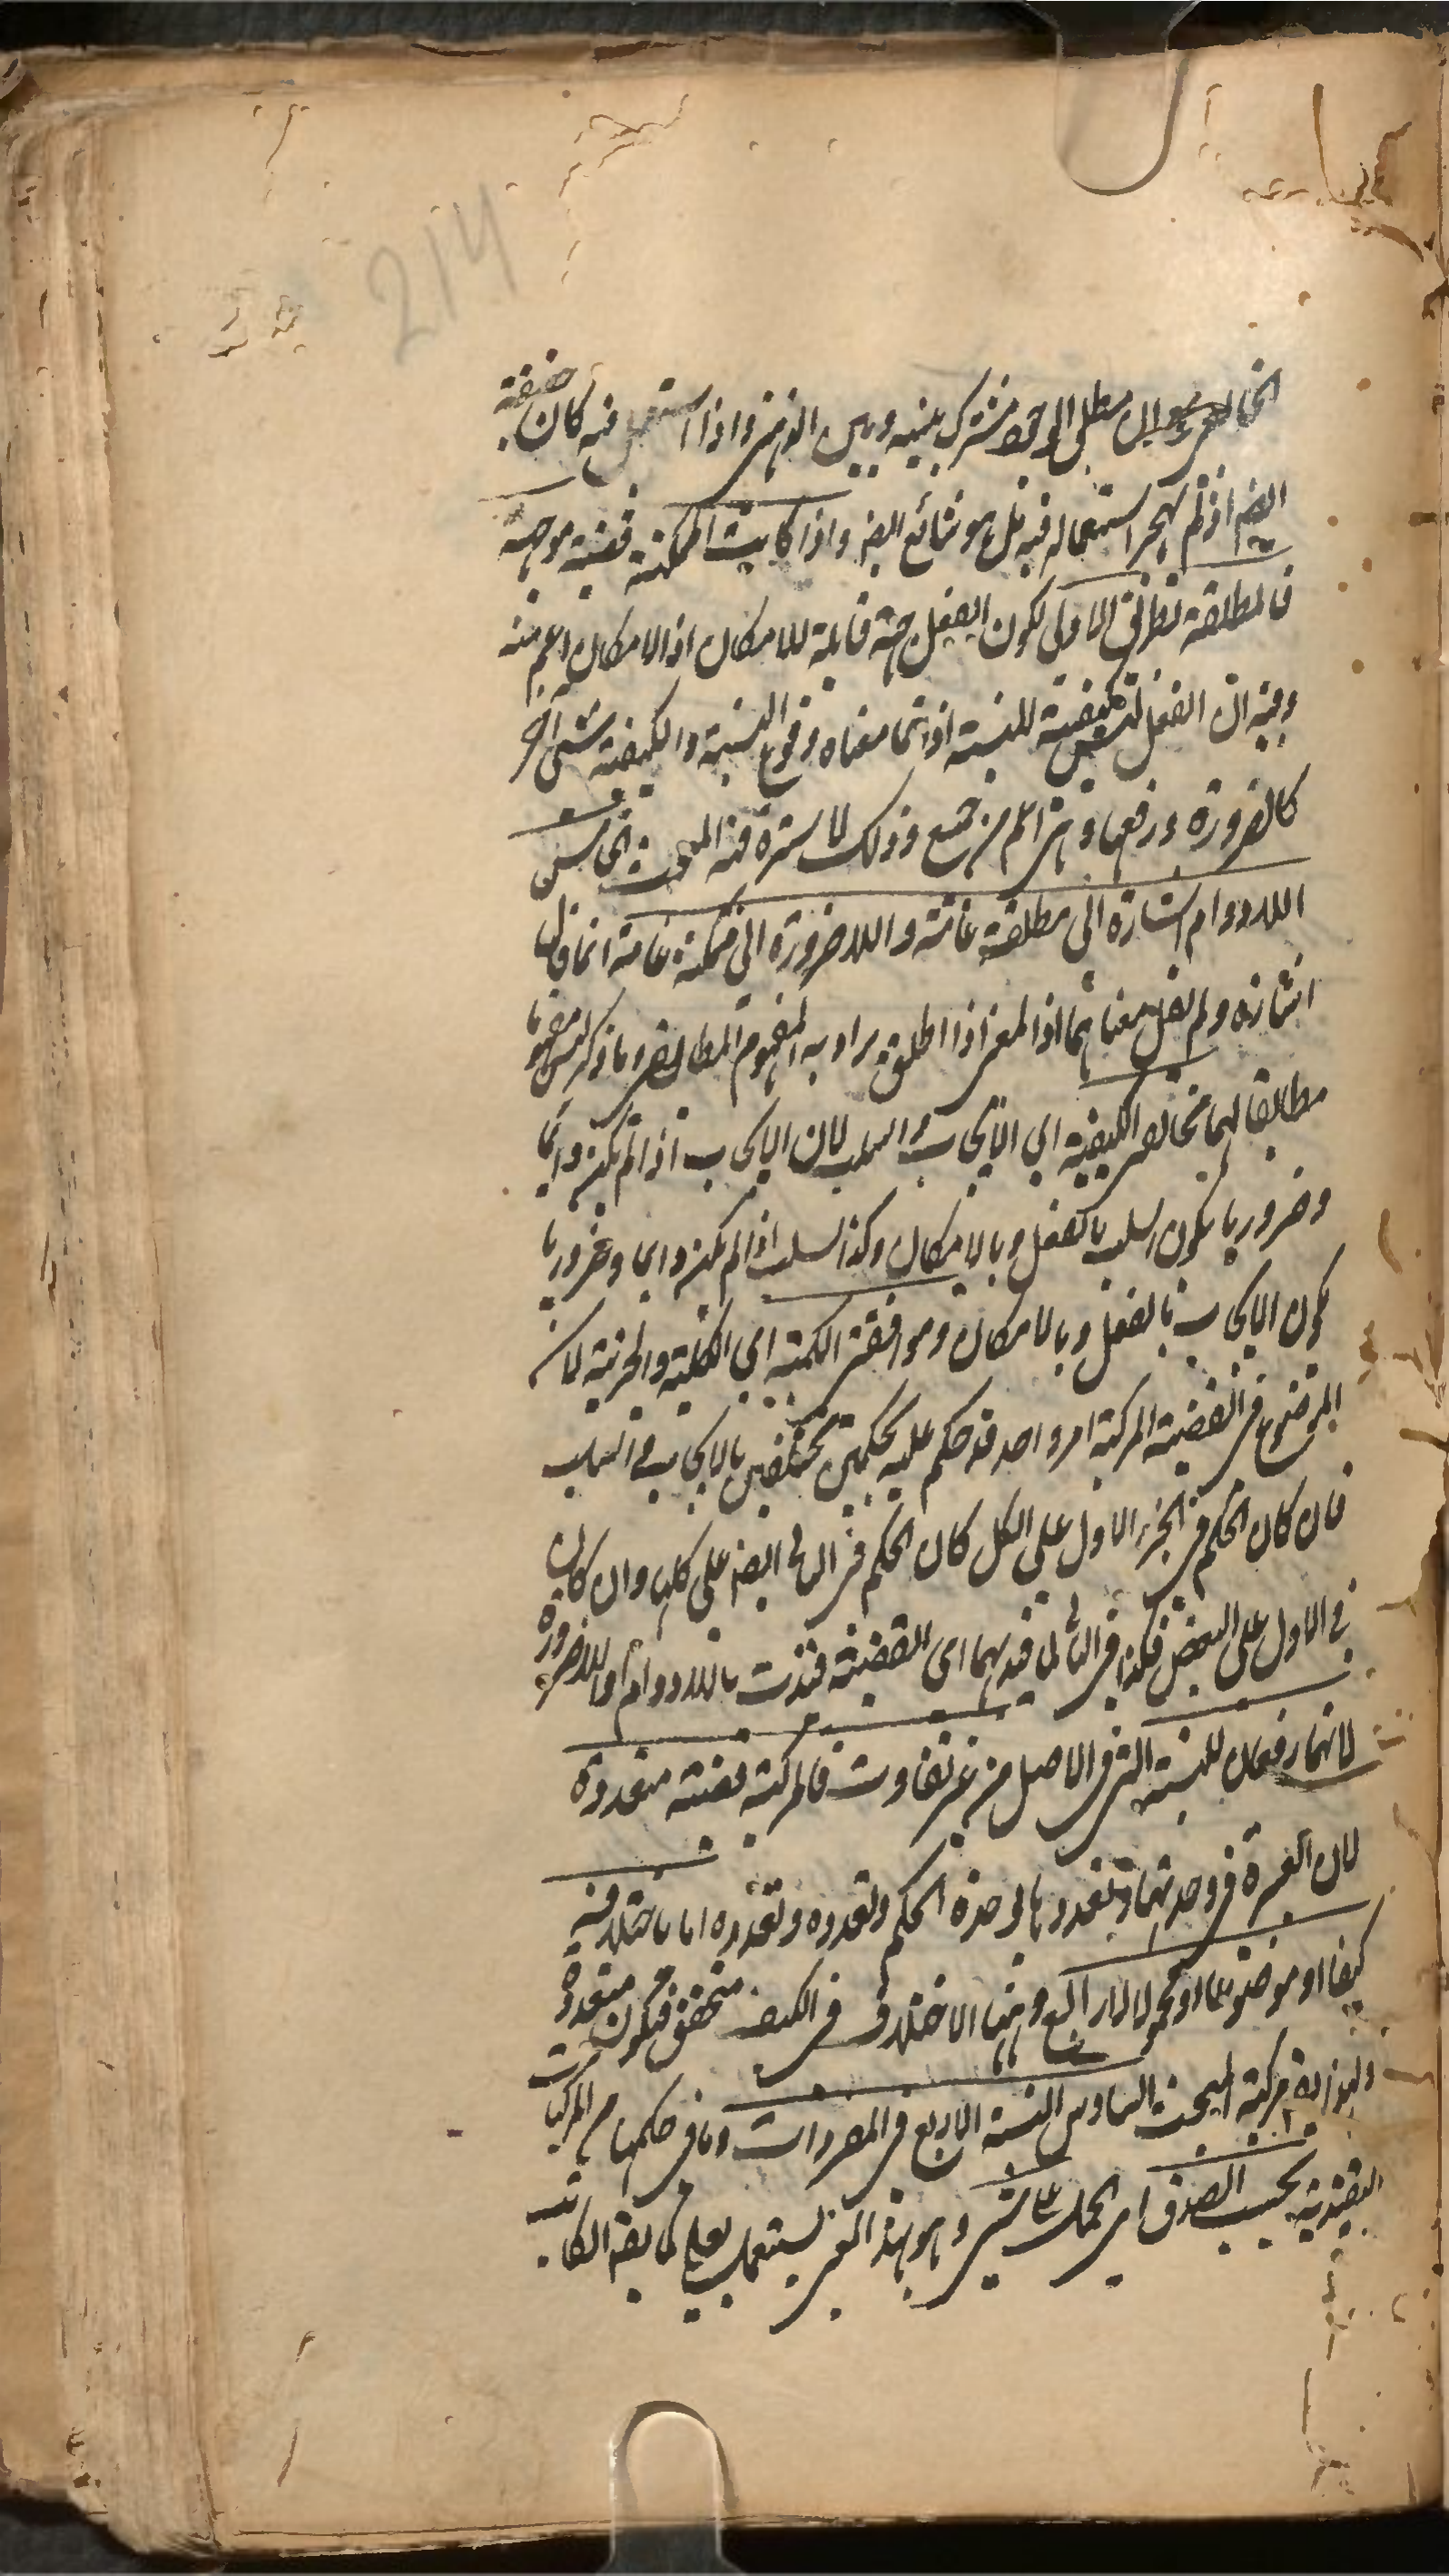 214
الخارجي لان مطلق الوجود مشترك بينه وبين الذهني واذا استعمل فيه كان حقيقة
ايضا اذ لم يهجر استعماله فيه بل هو شائع ايضا واذا كانت الممكنة قضية موجهة
فالمطلقة بطريق الاولى لكون الفعل جهة قابلة للامكان اذ الامكان اعم منه
وفيه ان الفعل ليس كيفية للنسبة اذ انما معناه وقوع النسبة والكيفية شئ آخر
كالضرورة ورفعها وذلك لا سترة فيه المبحث الخامس
اللادوام اشارة الى مطلقة عامة واللاضرورة الى ممكنة عامة انما قال
اشارة ولم يقل معناهما اذ المعنى اذا اطلق يراد به المفهوم المطابقي وما ذكر ليس مفهوما
مطابقا لهما مخالفى الكيفية اى الايجاب والسلب لان الايجاب اذا لم يكن دائما
وضروريا يكون السلب بالفعل وبالامكان وكذا السلب اذا لم يكن دائما وضروريا
يكون الايجاب بالفعل وبالامكان وموافقى الكمية اى الكلية والجزئية لان
الموضوع فى القضية المركبة امر واحد قد حكم عليه بحكمين مختلفين بالايجاب والسلب
فان كان الحكم فى الجزء الاول على الكل كان الحكم فى الثانى ايضا على كلها وان كان
فى الاول على البعض فكذا فى الثانى لما قيد بهما اى القضية قيدت باللادوام او اللاضرورة
لانهما رفعان للنسبة التى فى الاصل من غير تفاوت فالمركبة قضية متعددة
لان العبرة فى وحدتهما وتعددها لوحدة الحكم وتعدده وتعدده اما باختلافه
كيفا او موضوعا او محمولا لا رابع وههنا الاختلاف فى الكيف متحقق فيكون متعددة
مركبة المبحث السادس النسبة الاربع فى المفردات وما فى حكمها من المركبات
التقييدية بحسب الصدق اى الحمل على شئ وهو بهذا المعنى يستعمل بعلى كما يقال الكاتب